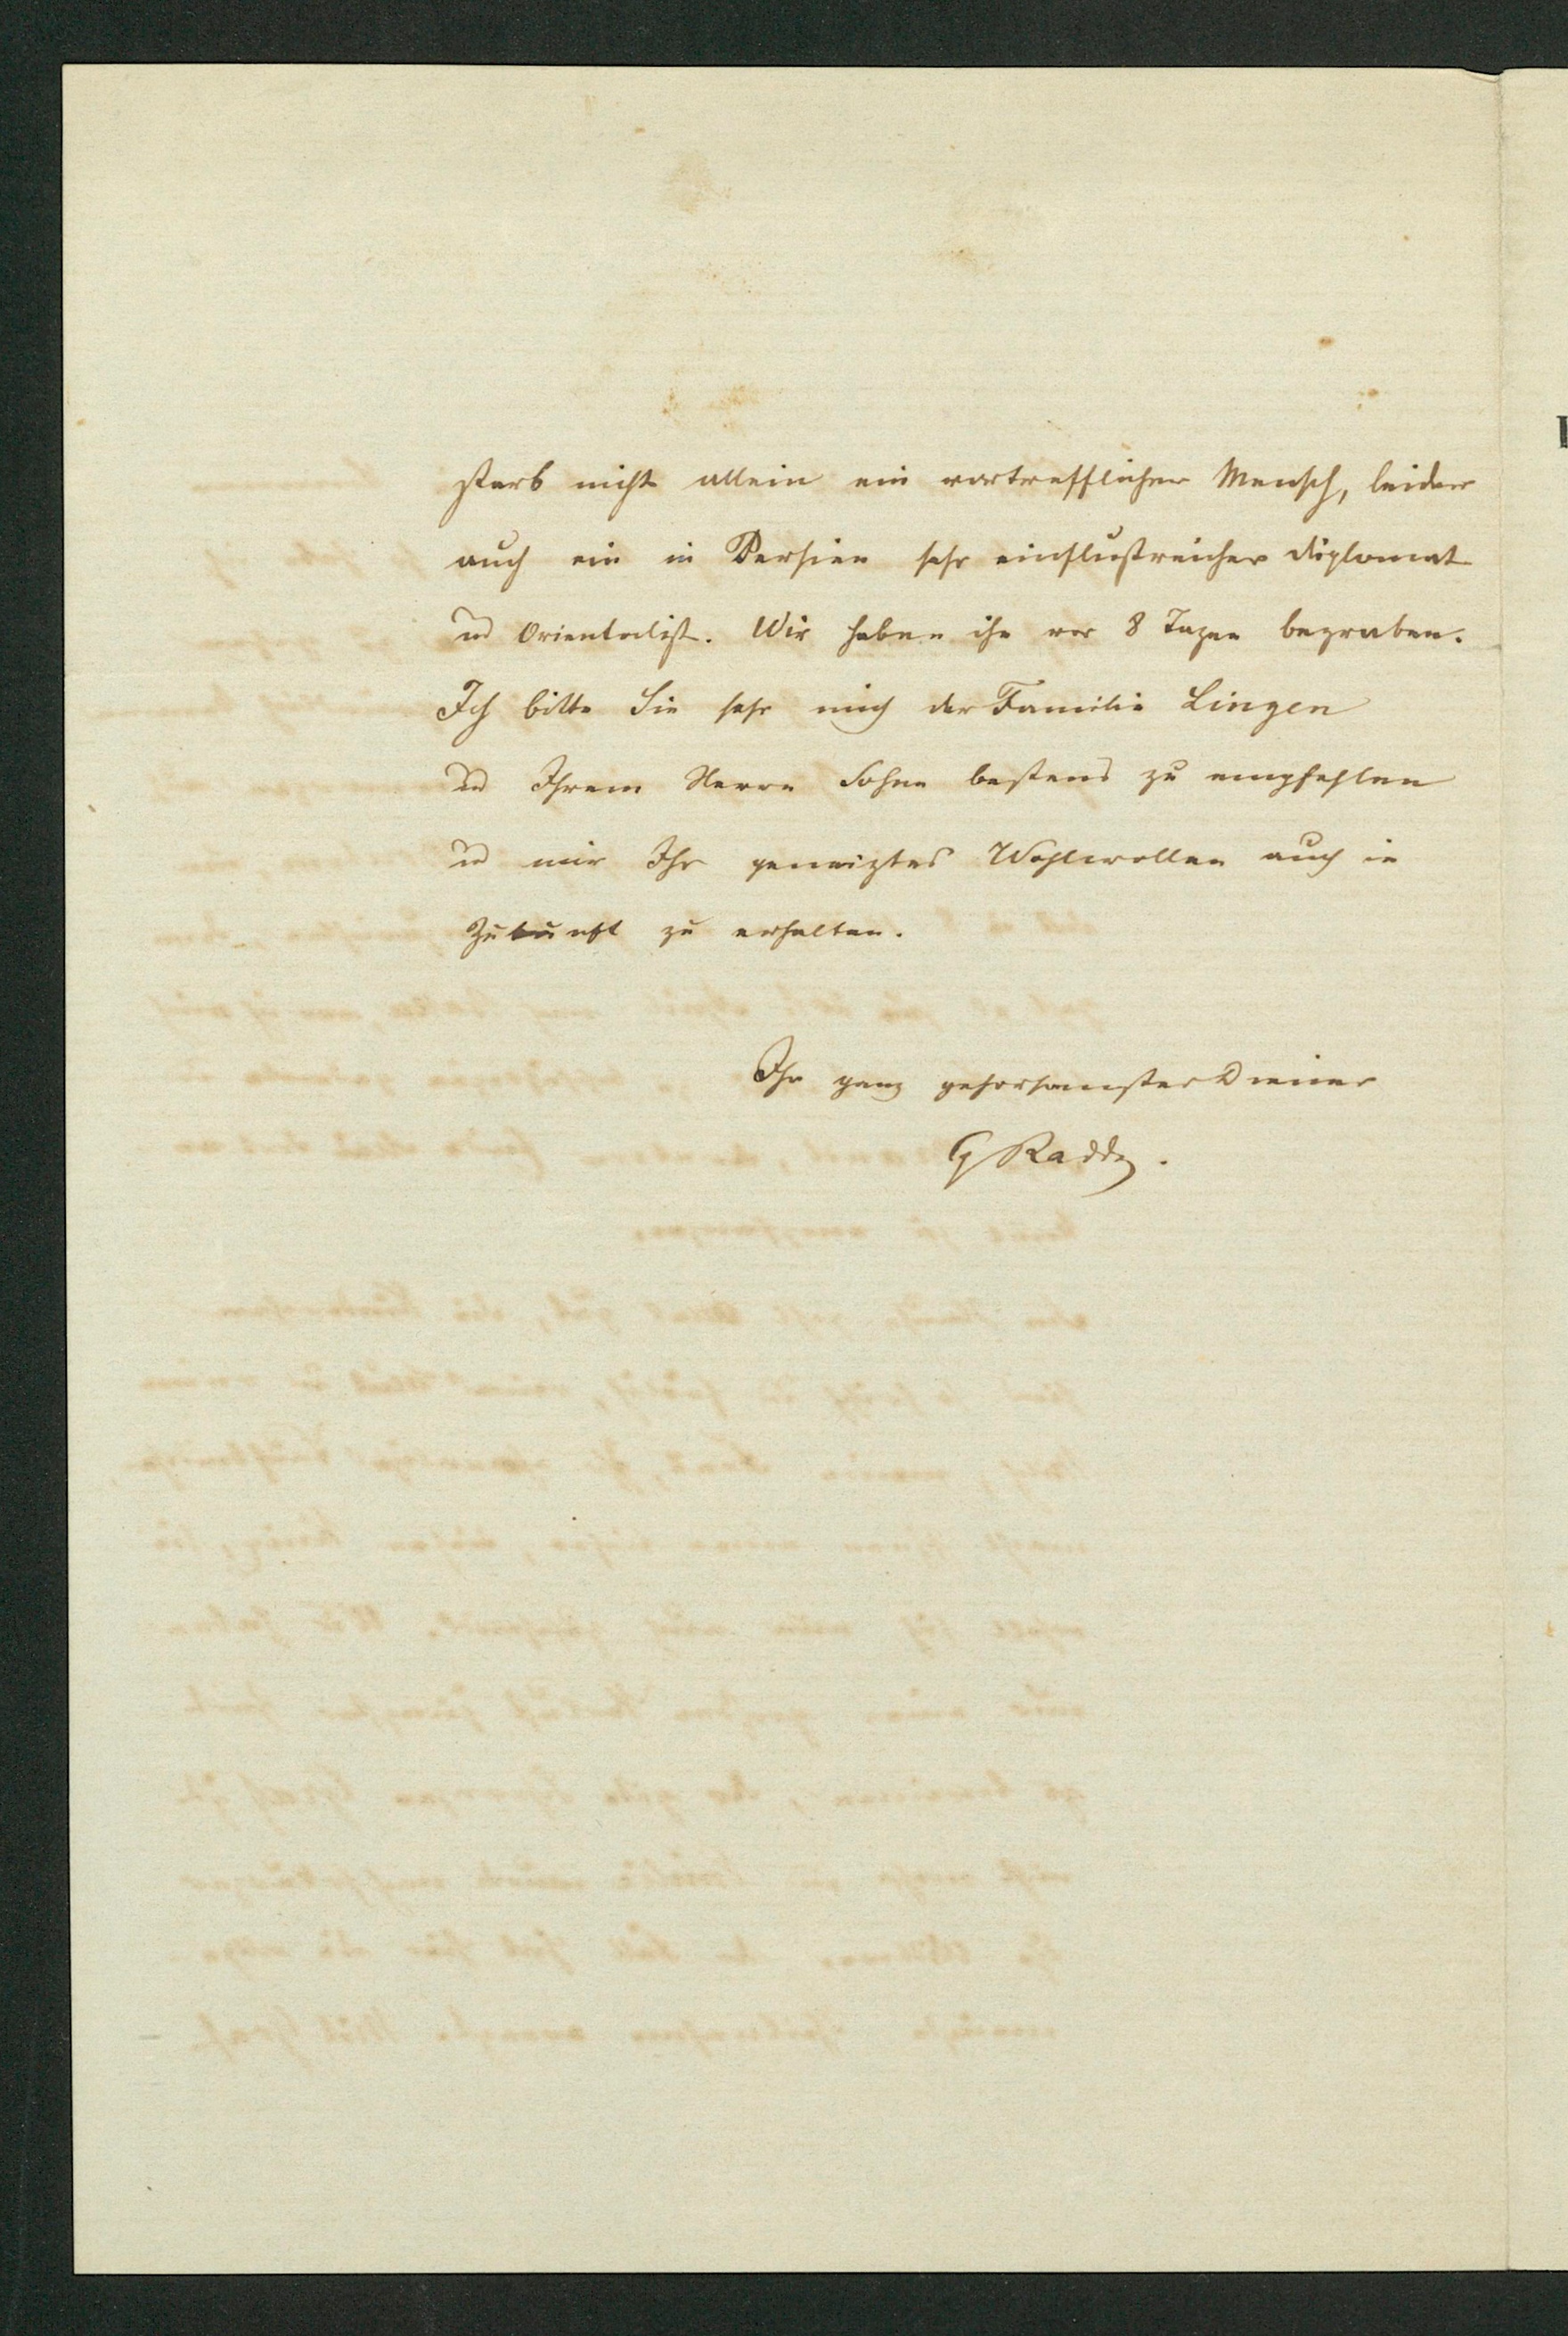 starb nicht allein ein vortrefflicher Mensch, leider
auch ein in Persien sehr einflußreicher Diplomat
und Orientalist. Wir haben ihn vor 8 Tagen begraben.
Ich bitte Sie sehr mich der Familie Lingen
und Ihrem Herrn Sohne bestens zu empfehlen
und mir Ihr geneigtes Wohlwollen auch in
Zukunft zu erhalten.
Ihr ganz gehorsamster Diener
G Radde.